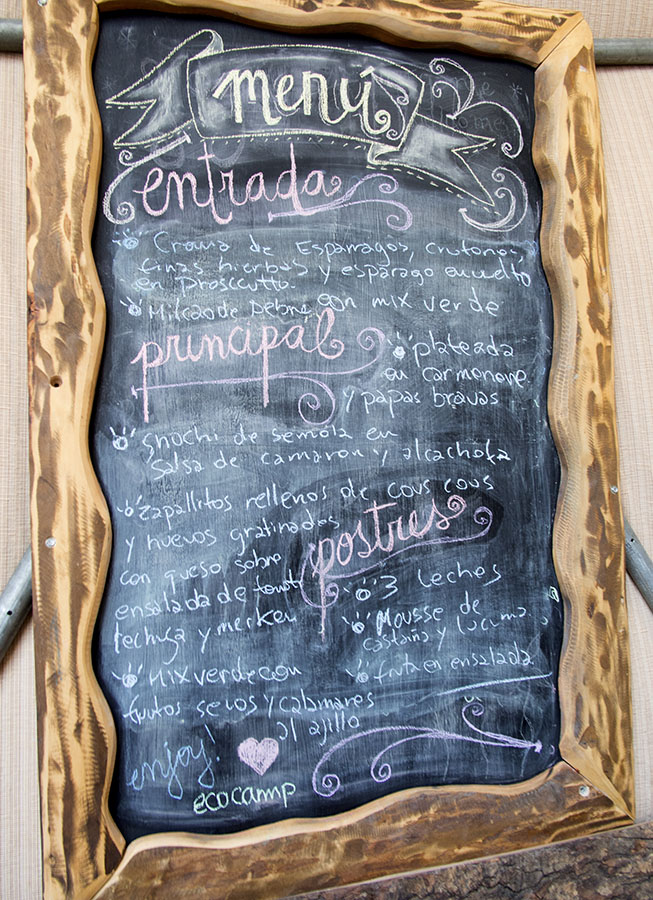 menú
entrada
Crema de Esparragos, crutones,
finas hierbas y esparago envuelto
en Prosccutto.
Milcao de Debre con mix verde
principal
plateada
en carmenere
y papas bravas
gnochi de semola en
salsa de camaron y alcachofa
zapallitos rellenos de cous cous
y huevos gratinados
con queso sobre
ensalada de tomate
lechuga y merken
Mix verde con
frutos secos y calamares
al ajillo
postres
3 leches
Mousse de
castaña y lucuma
fruta en ensalada
enjoy!
ecocamp